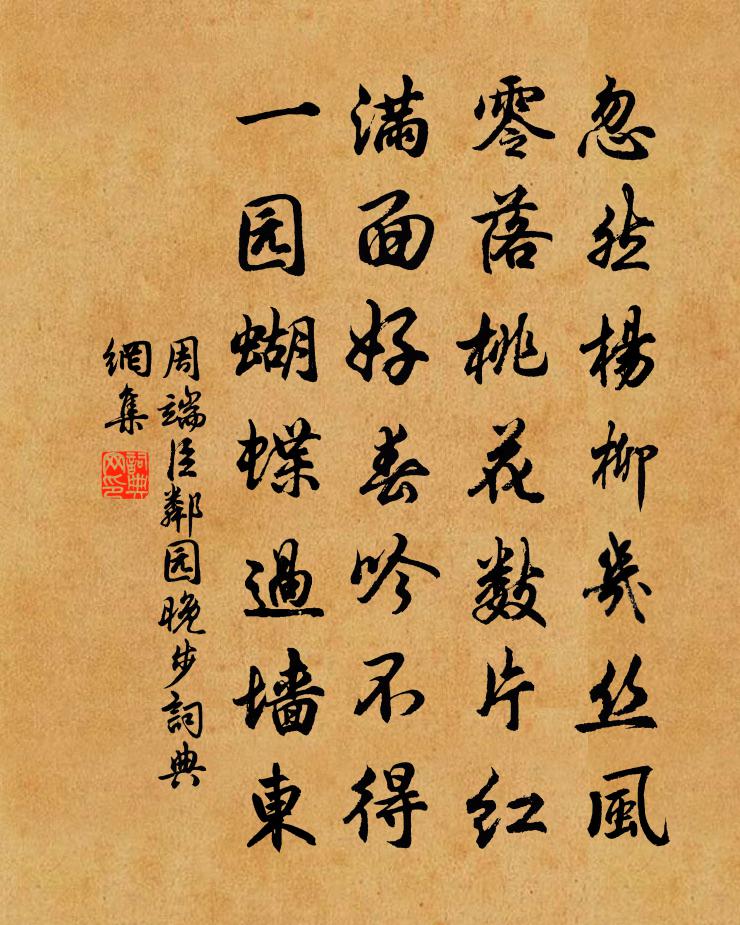 忽然楊柳幾丝風
零落桃花數片红
满面好春吟不得
一园蝴蝶過墙東
周端臣鄰园晚步詞典
網集
詞典
网印